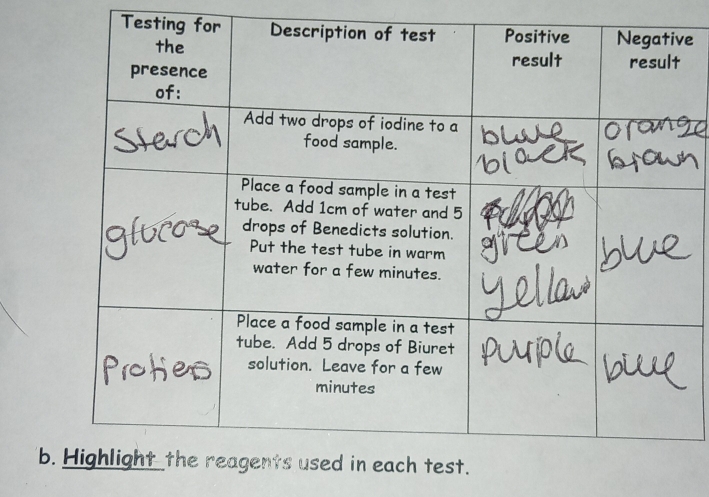 Testing for
the
presence
of:
Description of test
Positive
result
Negative
result
Sterch
Add two drops of iodine to a
food sample.
blue
black
orange
brown
glucose
Place a food sample in a test
tube. Add 1cm of water and 5
drops of Benedicts solution.
Put the test tube in warm
water for a few minutes.
green
yellow
blue
Protiens
Place a food sample in a test
tube. Add 5 drops of Biuret
solution. Leave for a few
minutes
purple
blue
b. Highlight the reagents used in each test.